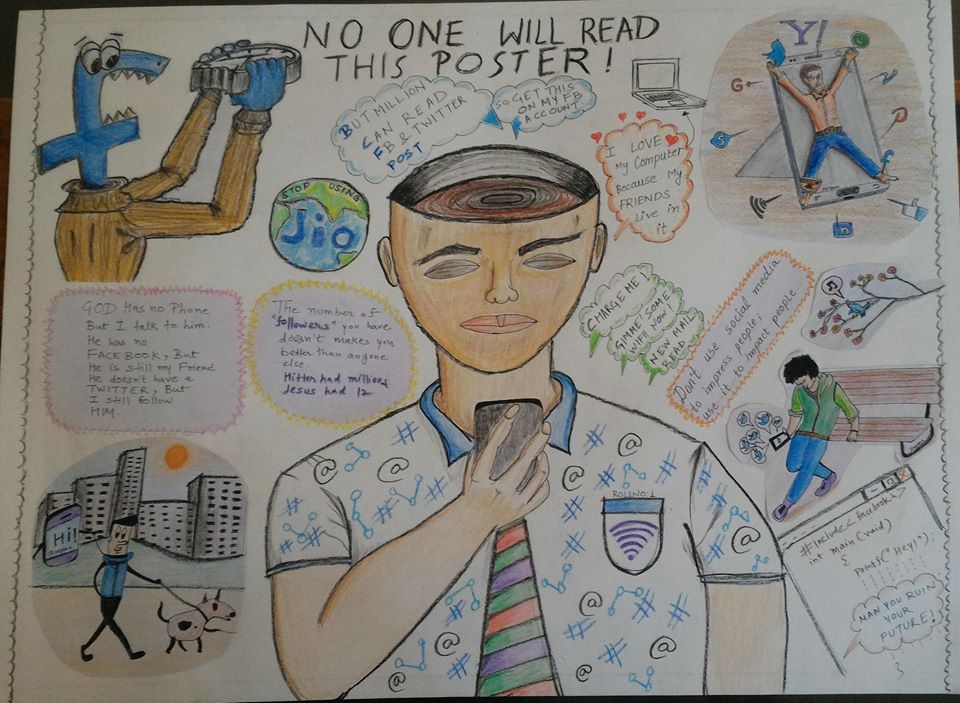 NO ONE WILL READ
THIS POSTER!
BUT MILLION
CAN READ
FB & TWITTER
POST
SO GET THIS
ON MY FB
ACCOUNT
I LOVE
My Computer
Because My
FRIENDS
Live in
it
Y!
G
S
n
f
STOP USING
Jio
GOD Has no Phone
But I talk to him.
He has no
FACEBOOK, But
He is still my Friend
He doesn't have a
TWITTER, But
I still follow
HIM
THE number of
"followers" you have
doesn't makes you
better than anyone
else
Hitler had millions
Jesus had 12
CHARGE ME!
GIMME SOME
WIFI NOW!
NEW MAIL
READ
Don't use social media
to impress people;
use it to impact people
Hi!
ROLLNO:1
#include<facebook.h>
int main(void)
{
printf("Hey!");
MAN YOU RUIN
YOUR
FUTURE!
}